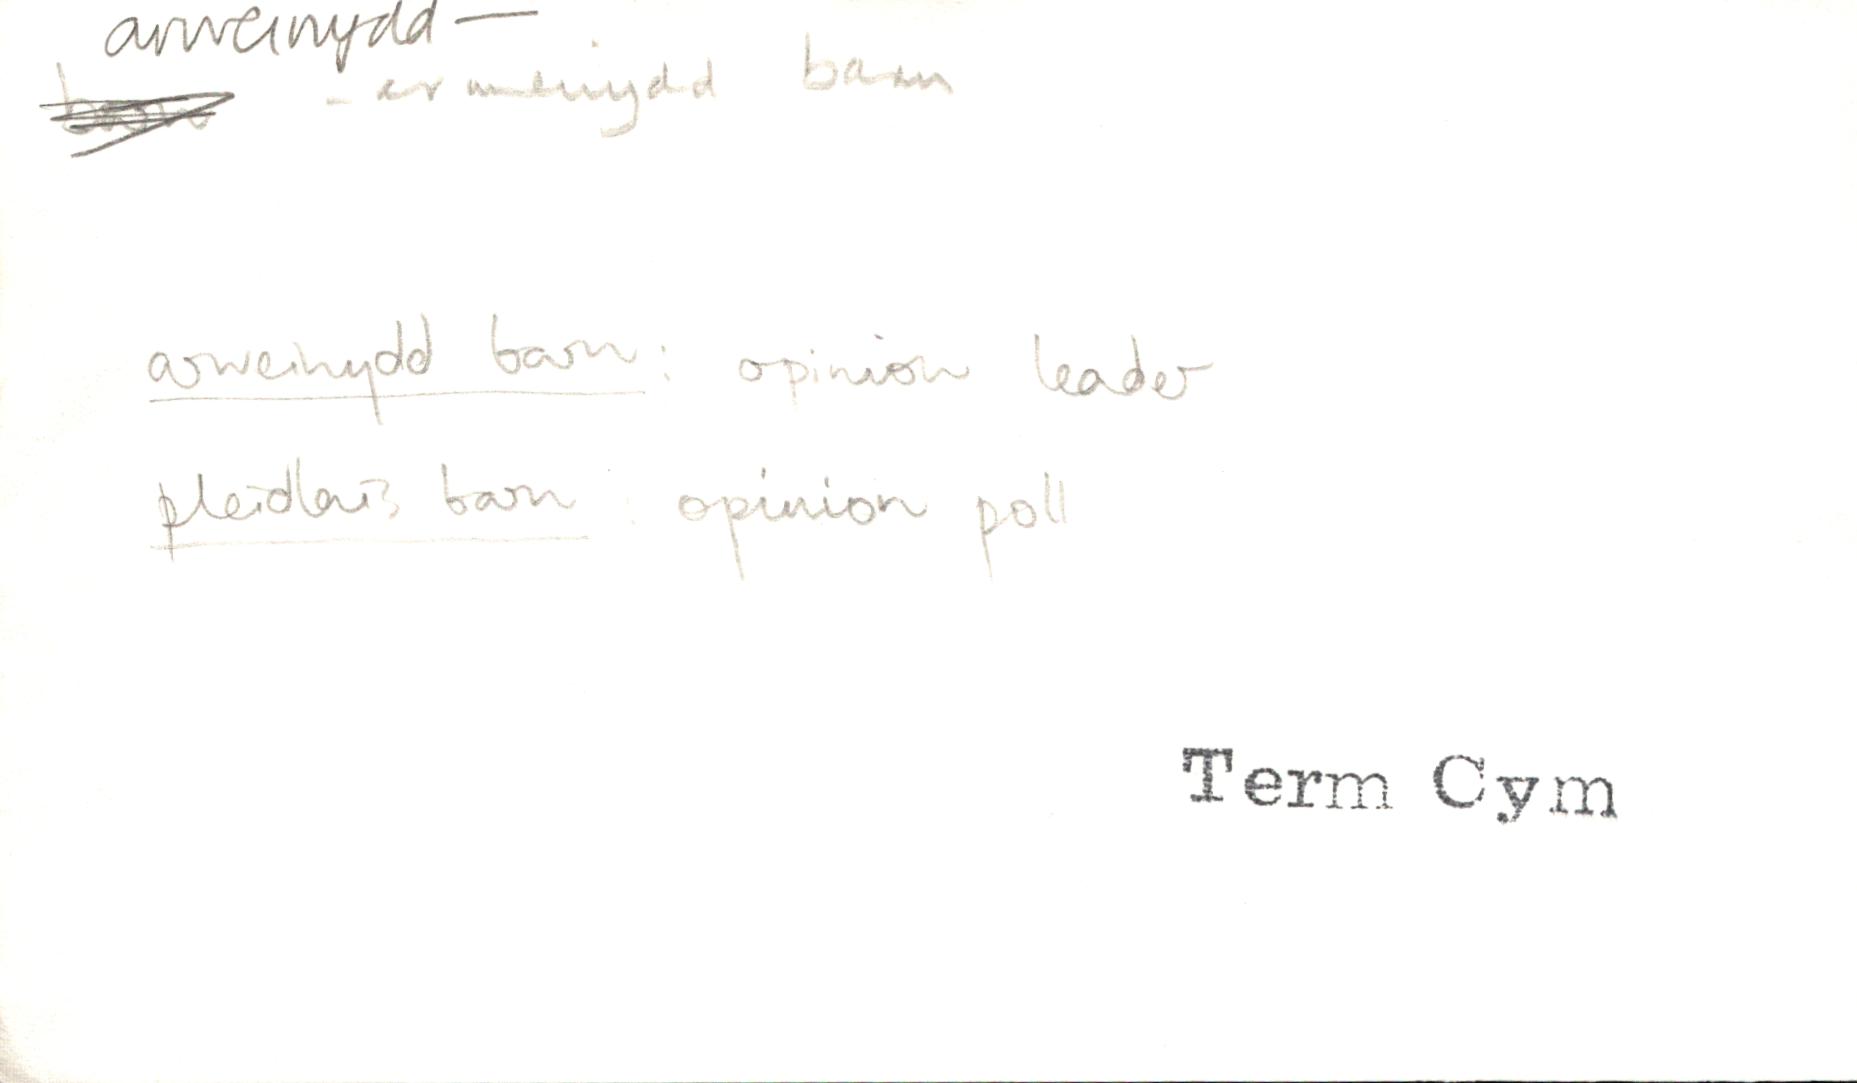 arweinydd —
barn - arweinydd barn
arweinydd barn : opinion leader
pleidlais barn : opinion poll
Term Cym